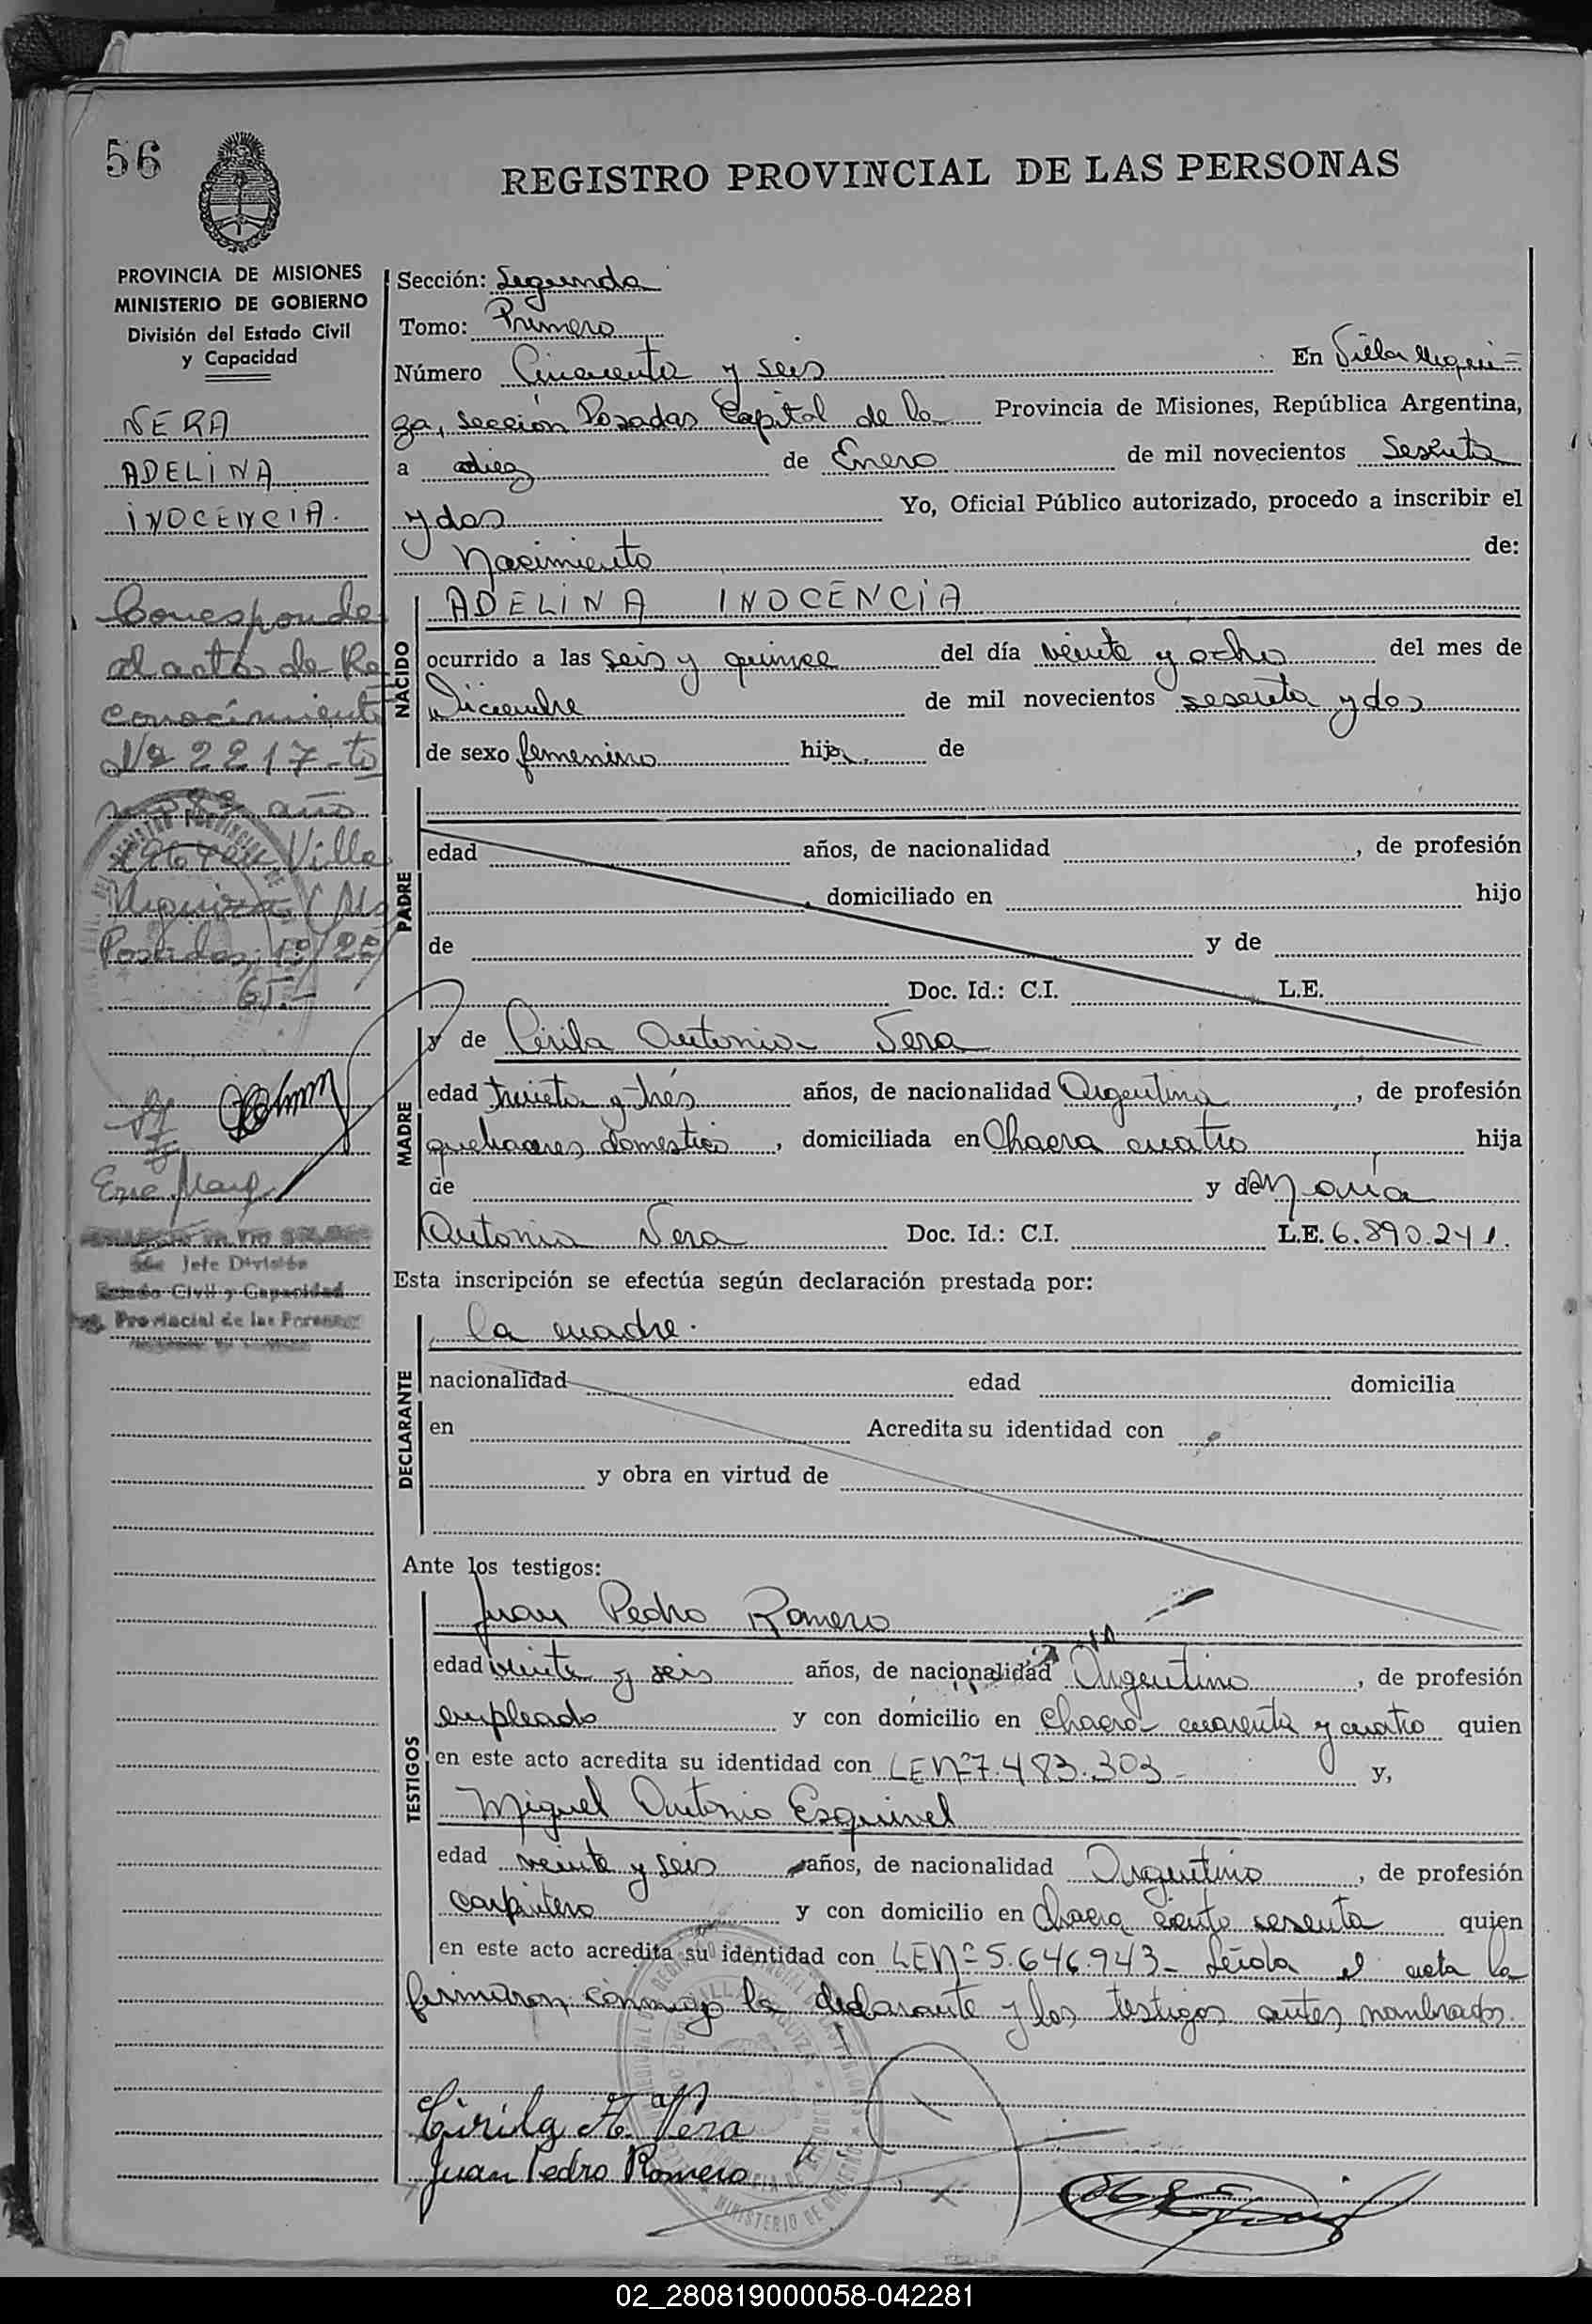 56
REGISTRO PROVINCIAL DE LAS PERSONAS
PROVINCIA DE MISIONES
MINISTERIO DE GOBIERNO
División del Estado Civil
y Capacidad
VERA
ADELINA
INOCENCIA.
Corresponde
al acta de Re
conocimiento
Nº 2217-tº
año
Villa
Urquiza
Posadas,
65.-
Jefe División
Estado Civil y Capacidad
Provincial de las Personas
Sección: Segunda
Tomo: Primero
Número Cincuenta y seis En Villa Urqui=
za, sección Posadas Capital de la Provincia de Misiones, República Argentina,
a diez de Enero de mil novecientos Sesenta
y dos Yo, Oficial Público autorizado, procedo a inscribir el
Nacimiento de:
NACIDO
ADELINA INOCENCIA
ocurrido a las seis y quince del día veinte y ocho del mes de
Diciembre de mil novecientos sesenta y dos
de sexo femenino hija de
PADRE
edad años, de nacionalidad , de profesión
, domiciliado en hijo
de y de
Doc. Id.: C.I. L.E.
MADRE
y de Cirila Antonia Vera
edad treinta y tres años, de nacionalidad Argentina, de profesión
quehaceres domestico, domiciliada en Chacra cuatro hija
de y de María
Antonia Vera Doc. Id.: C.I. L.E. 6.890.241.
Esta inscripción se efectúa según declaración prestada por:
DECLARANTE
la madre.
nacionalidad edad domicilia
en Acredita su identidad con
y obra en virtud de
Ante los testigos:
TESTIGOS
Juan Pedro Romero
edad veinte y seis años, de nacionalidad Argentino, de profesión
empleado y con domicilio en Chacra cuarenta y cuatro quien
en este acto acredita su identidad con LENº7.483.303- y,
Miguel Antonio Esquivel
edad veinte y seis años, de nacionalidad Argentino, de profesión
carpintero y con domicilio en Chacra ciento sesenta quien
en este acto acredita su identidad con LENº5.646.943- Leída el acta la
firmaron conmigo la declarante y los testigos antes nombrados.
Cirila A. Vera
Juan Pedro Romero
02_280819000058-042281